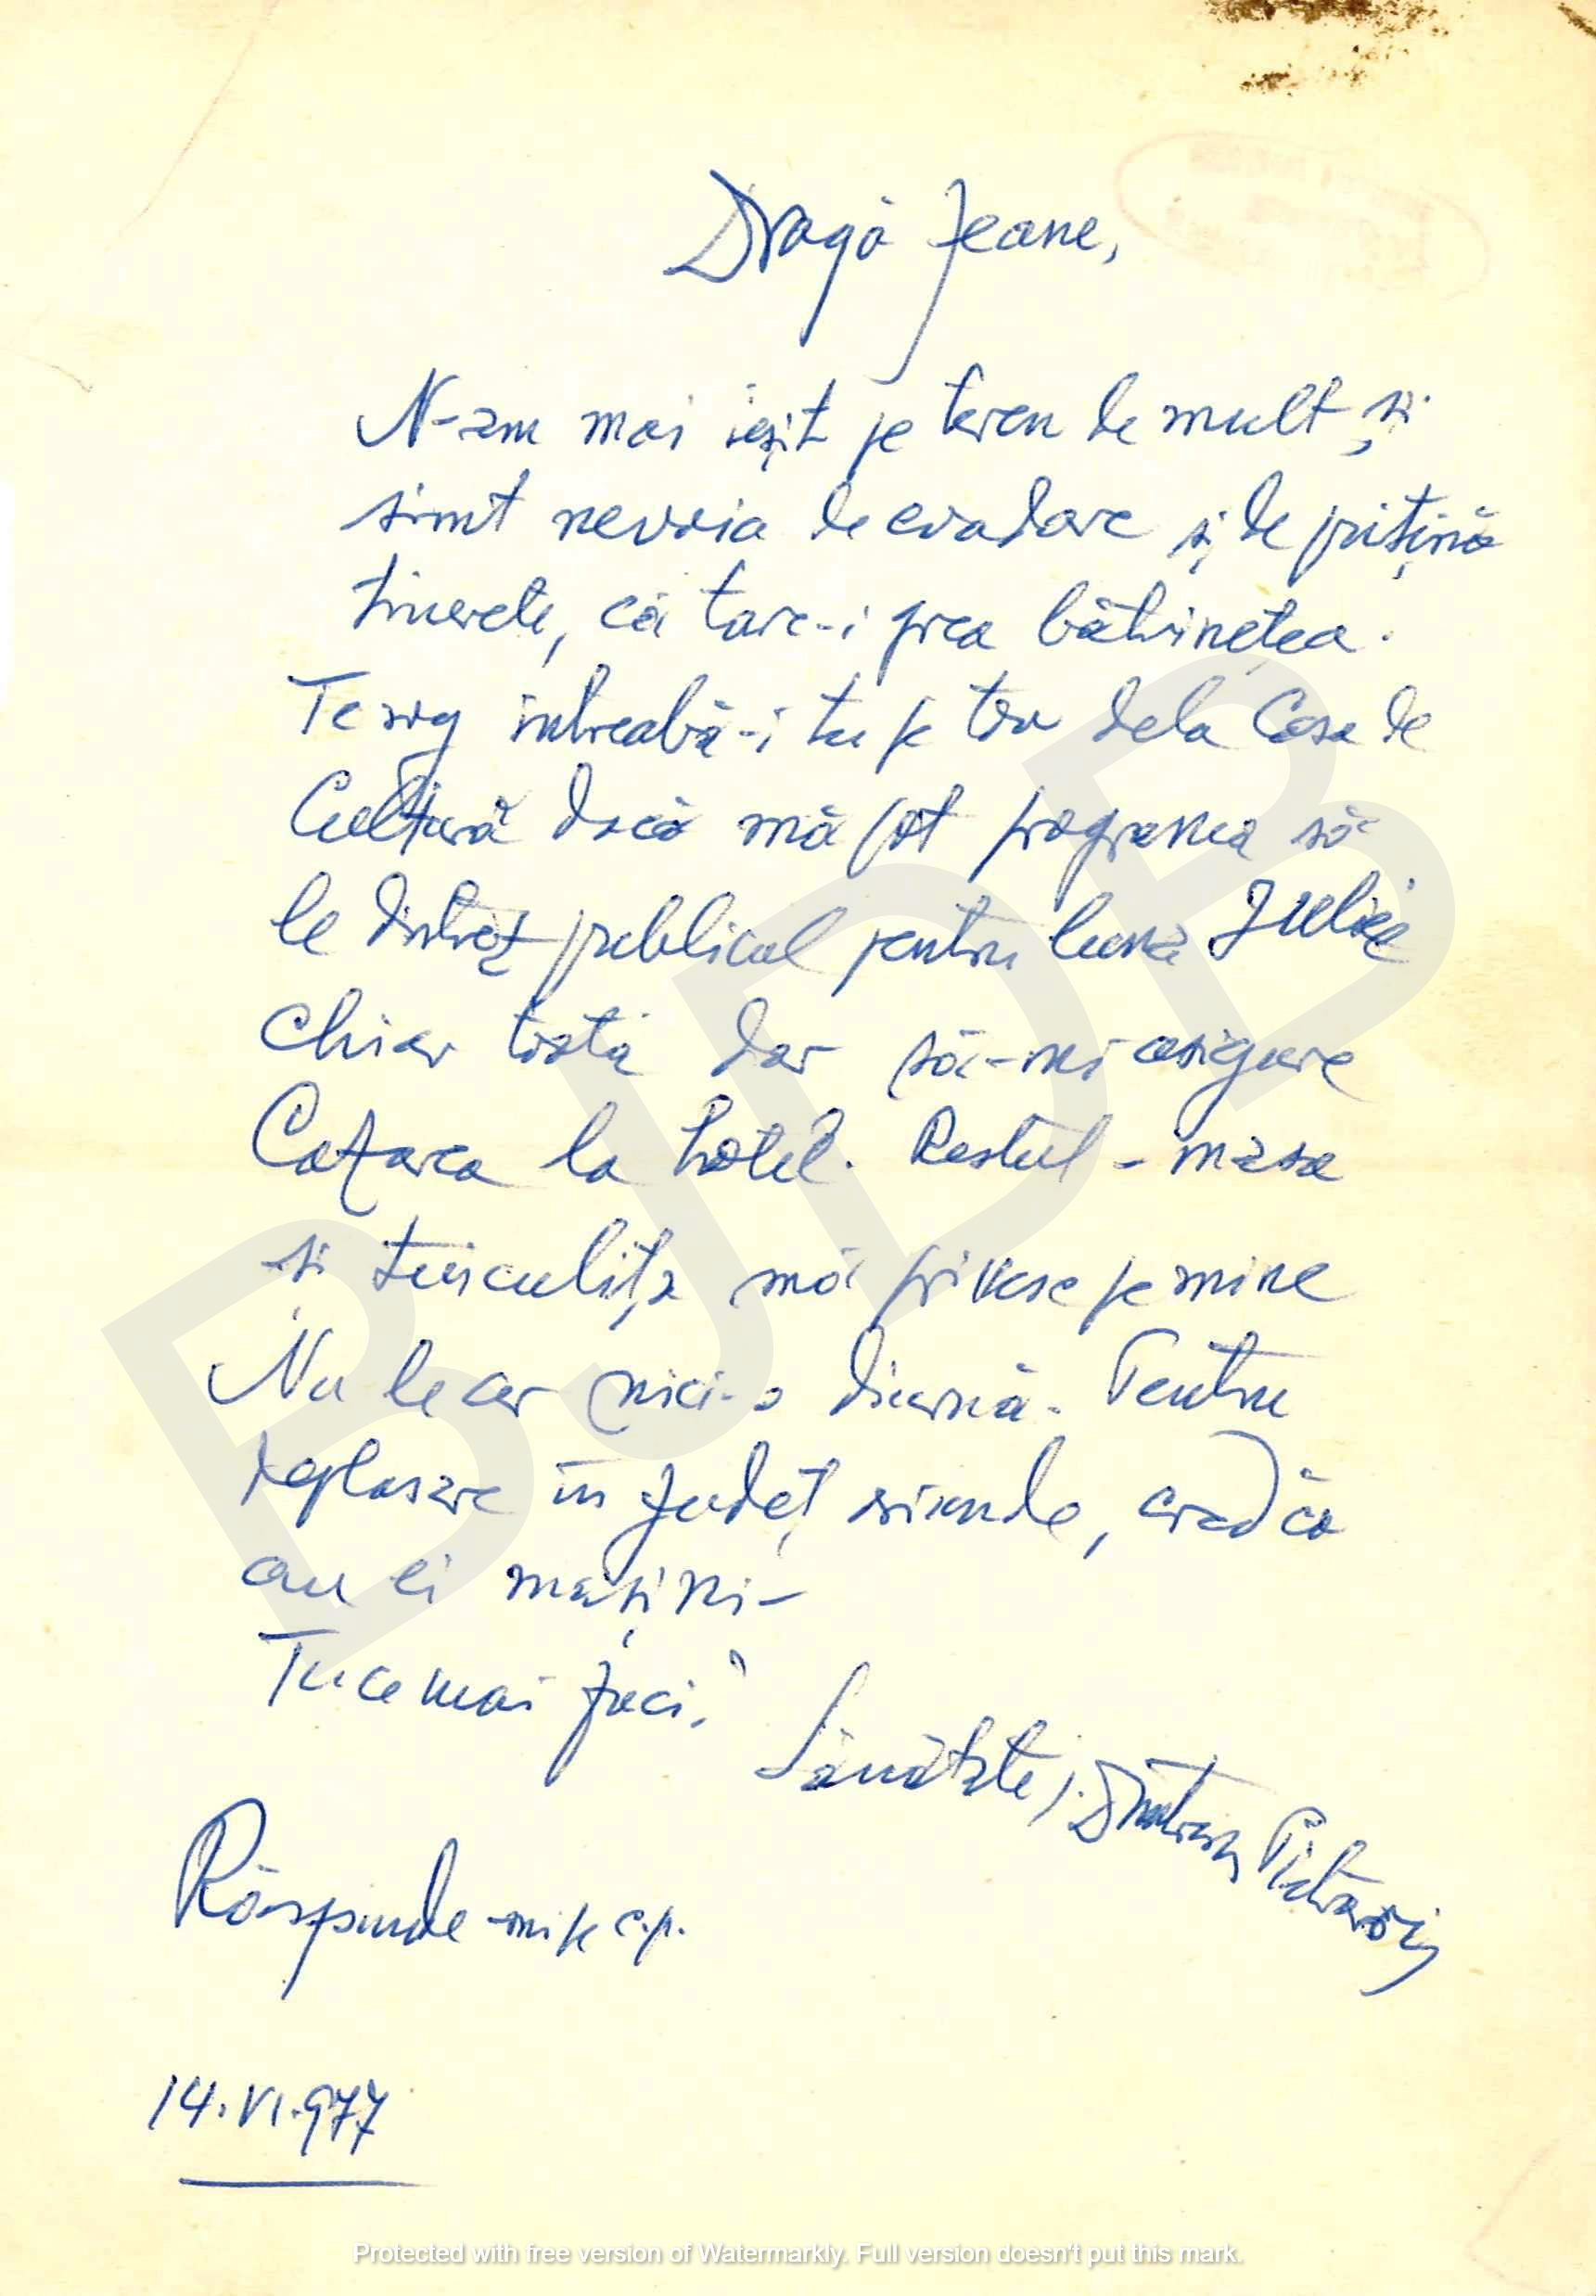 Dragă Jeane,
N-am mai ieșit pe teren de mult și
simt nevoia de evadare și de puțină
tinerețe, că tare-i grea bătrînețea.
Te rog întreabă-i tu pe tov dela Casa de
Cultură dacă mă pot programa să
le distrez publicul pentru luna Iulie
chiar toată dar să-mi asigure
Cazarea la hotel. Restul - masa
și țuiculița mă privesc pe mine
Nu le cer nici-o diurnă. Pentru
deplasare în județ oriunde, cred că
au ei mașini-
Tu ce mai faci?
Sănătate,
Răspunde-mi pe c.p.
14.VI.977
BJDB
Protected with free version of Watermarkly. Full version doesn't put this mark.